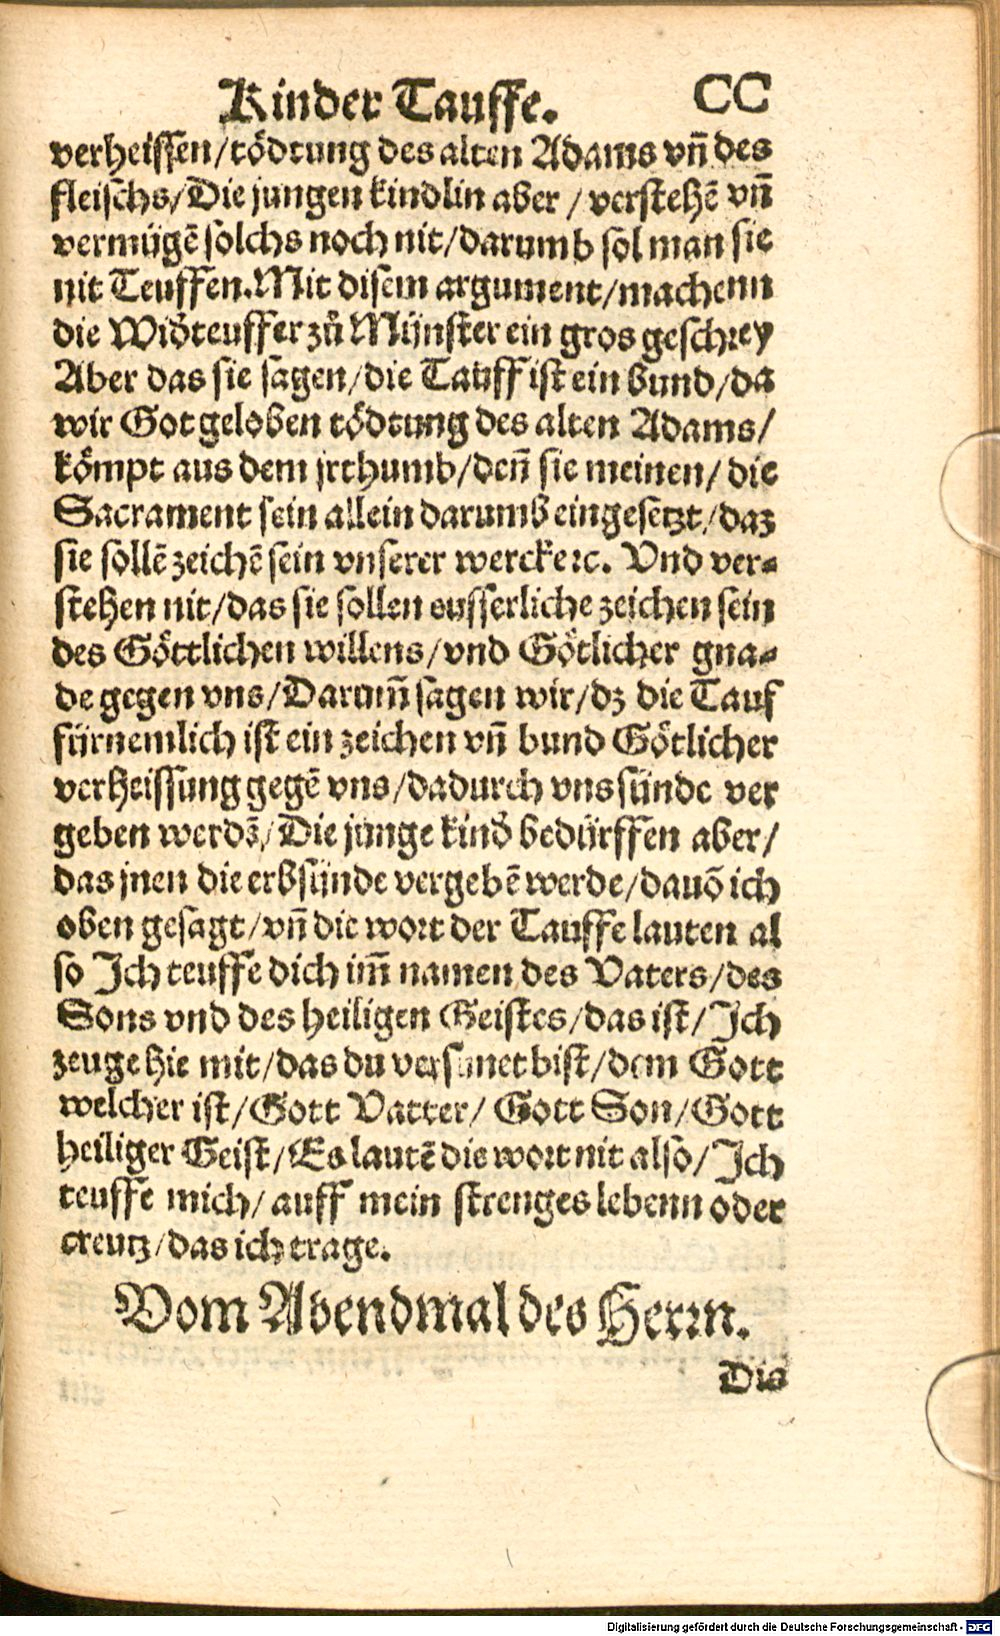 Kinder Tauffe. CC
verheissen/tödtung des alten Adams vn̄ des
fleischs/Die jungen kindlin aber/verstehē vn̄
vermügē solchs noch nit/darumb sol man sie
nit Teuffen.Mit disem argument/machenn
die Widteuffer zů Münster ein gros geschrey
Aber das sie sagen/die Tauff ist ein bund/da
wir Got geloben tödtung des alten Adams/
kömpt aus dem jrthumb/den̄ sie meinen/die
Sacrament sein allein darumb eingesetzt/daz
sie sollē zeichē sein vnserer wercke ꝛc. Vnd ver-
stehen nit/das sie sollen eusserliche zeichen sein
des Göttlichen willens/vnd Götlicher gna-
de gegen vns/Darum̄ sagen wir/dz die Tauf
fürnemlich ist ein zeichen vn̄ bund Götlicher
verheissung gegē vns/dadurch vns sünde ver
geben werdē/Die junge kind bedürffen aber/
das jnen die erbsünde vergebē werde/dauō ich
oben gesagt/vn̄ die wort der Tauffe lauten al
so Ich teuffe dich im̄ namen des Vaters/des
Sons vnd des heiligen Geistes/das ist/Ich
zeuge hie mit/das du versünet bist/dem Gott
welcher ist/Gott Vatter/Gott Son/Gott
heiliger Geist/Es lautē die wort nit also/Ich
teuffe mich/auff mein strenges lebenn oder
creutz/das ich trage.
Vom Abendmal des Herrn.
Die
Digitalisierung gefördert durch die Deutsche Forschungsgemeinschaft - DFG